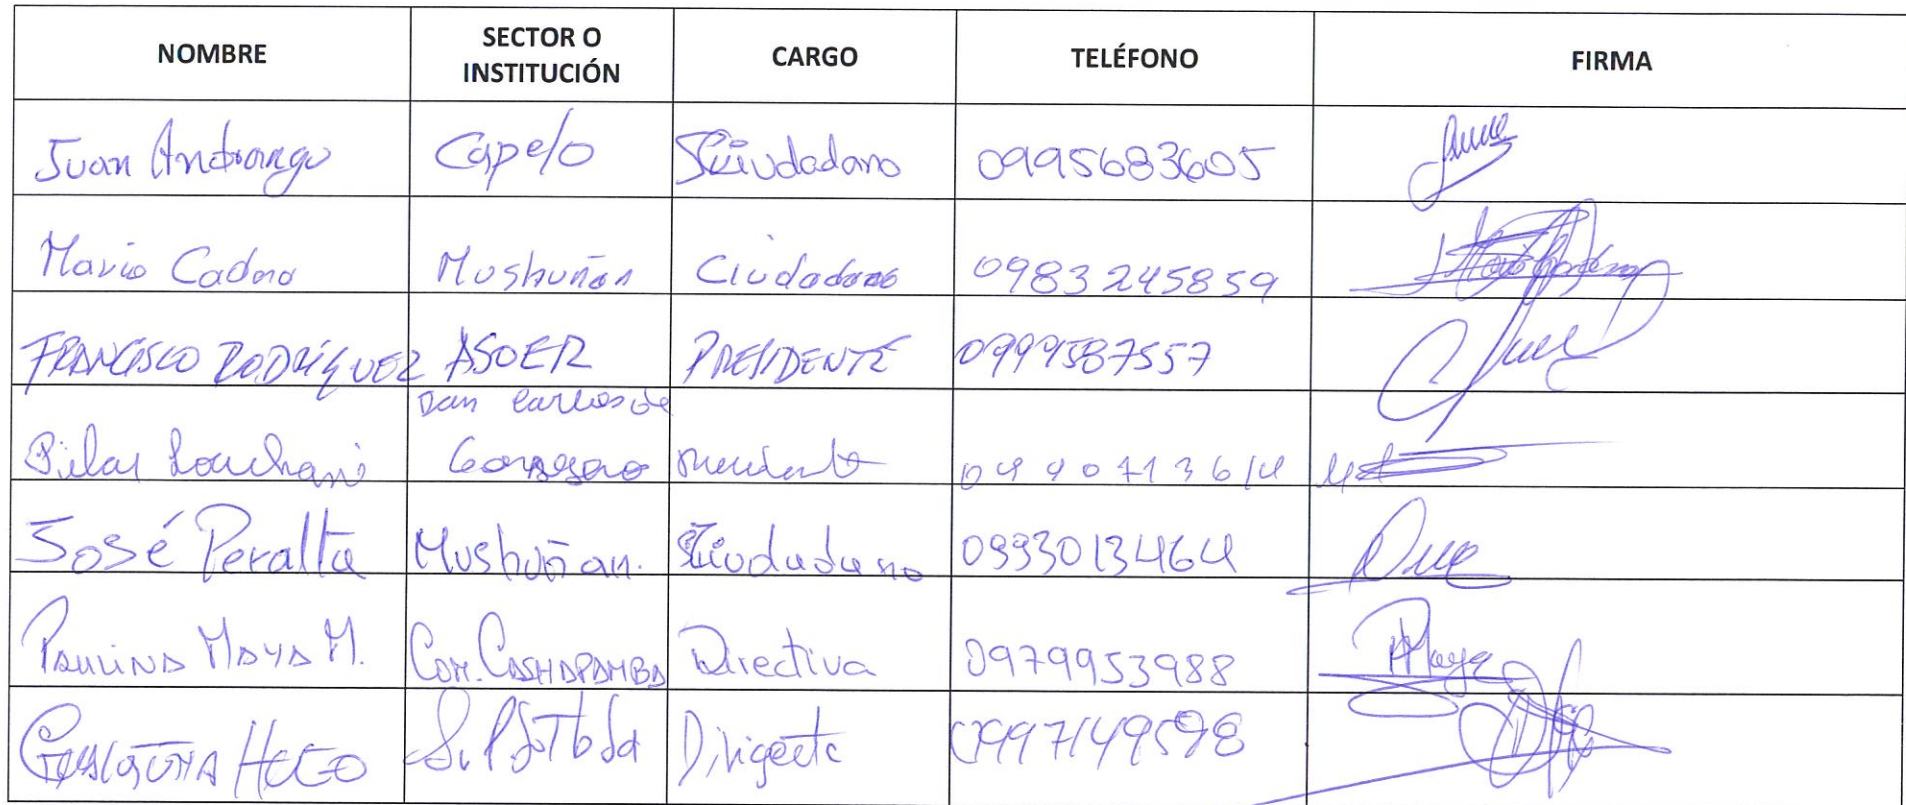 NOMBRE SECTOR O INSTITUCIÓN CARGO TELÉFONO FIRMA
Juan Andrango Capelo Ciudadano 0995683605
Mario Cadena Mushuñan Ciudadano 0983245859
FRANCISCO RODRÍGUEZ ASOER PRESIDENTE 0999587557
Pilar San Carlos de
José Peralta Mushuñan. Ciudadano 0993013464
Paulina Maya M. Com. Cashapamba Directiva 0979953988 PMaya
Hugo Dirigente 0997149598